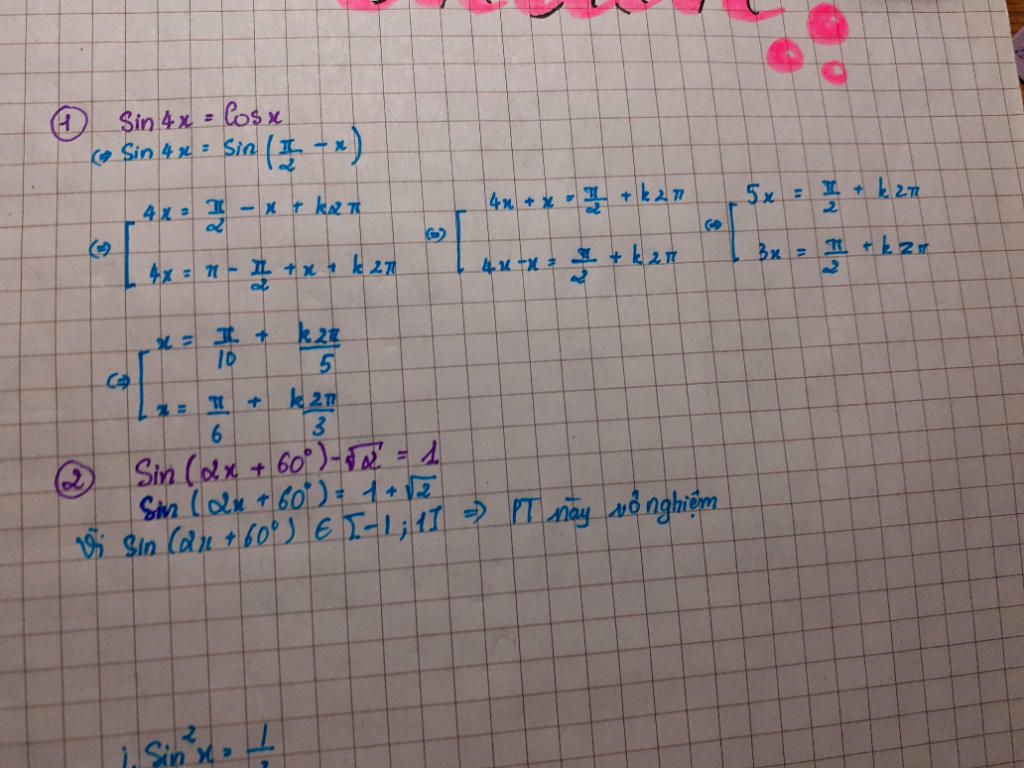 ① Sin 4x = Cosx
⇔ Sin 4x = Sin (π/2 - x)
⇔ [ 4x = π/2 - x + k2π ⇔ [ 4x + x = π/2 + k2π ⇔ [ 5x = π/2 + k2π
4x = π - π/2 + x + k2π 4x - x = π/2 + k2π 3x = π/2 + k2π
⇔ [ x = π/10 + k2π/5
x = π/6 + k2π/3
② Sin (2x + 60°) - √2 = 1
Sin (2x + 60°) = 1 + √2
Vì Sin (2x + 60°) ∈ [-1 ; 1] ⇒ PT này vô nghiệm
Sin²x = 1